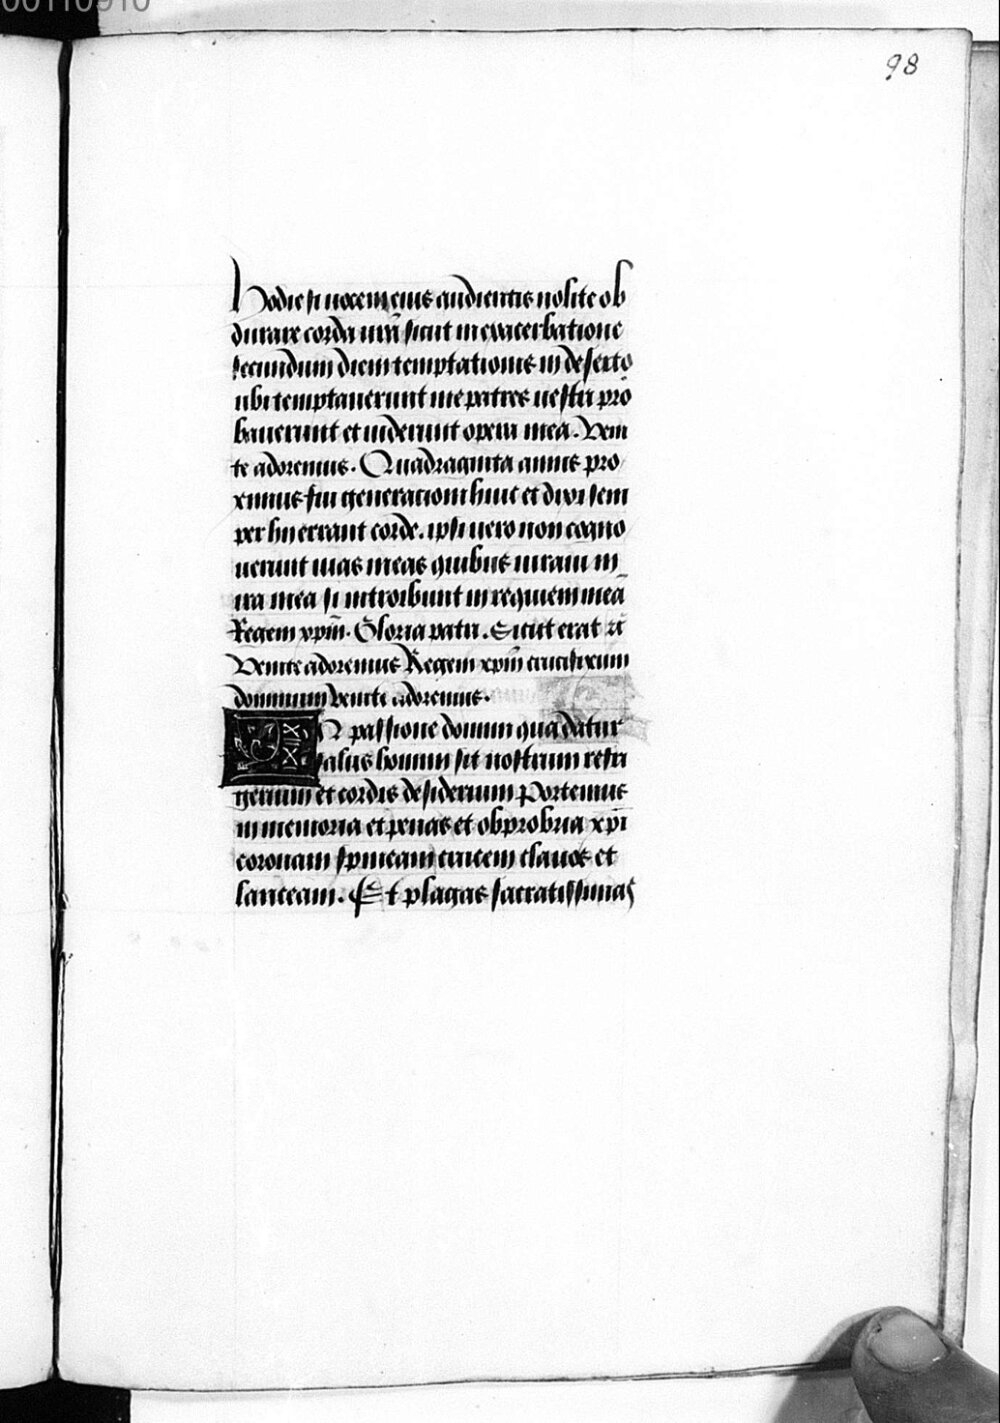 00110910
98
Hodie si vocem eius audientis nolite ob
durare corda vr̄a sicut in exacerbatione
secundum diem temptationis in deserto
ubi temptaverunt me patres vestri pro
baverunt et viderunt opera mea. Veni
te adoremus. Quadraginta annis pro
ximus fui generationi huic et dixi sem
per hii errant corde. ipsi vero non cogno
verunt vias meas quibus iuravi in
ira mea si introibunt in requiem meā
Regem xp̄m. Gloria patri. Sicut erat
Venite adoremus Regem xp̄m crucifixum
dominum venite adoremus.
IN passione domini qua datur
salus homini sit nostrum refri
gerium et cordis desiderium Portemus
in memoria et penas et obprobria xp̄i
coronam spineam crucem clavos et
lanceam. Et plagas sacratissimas